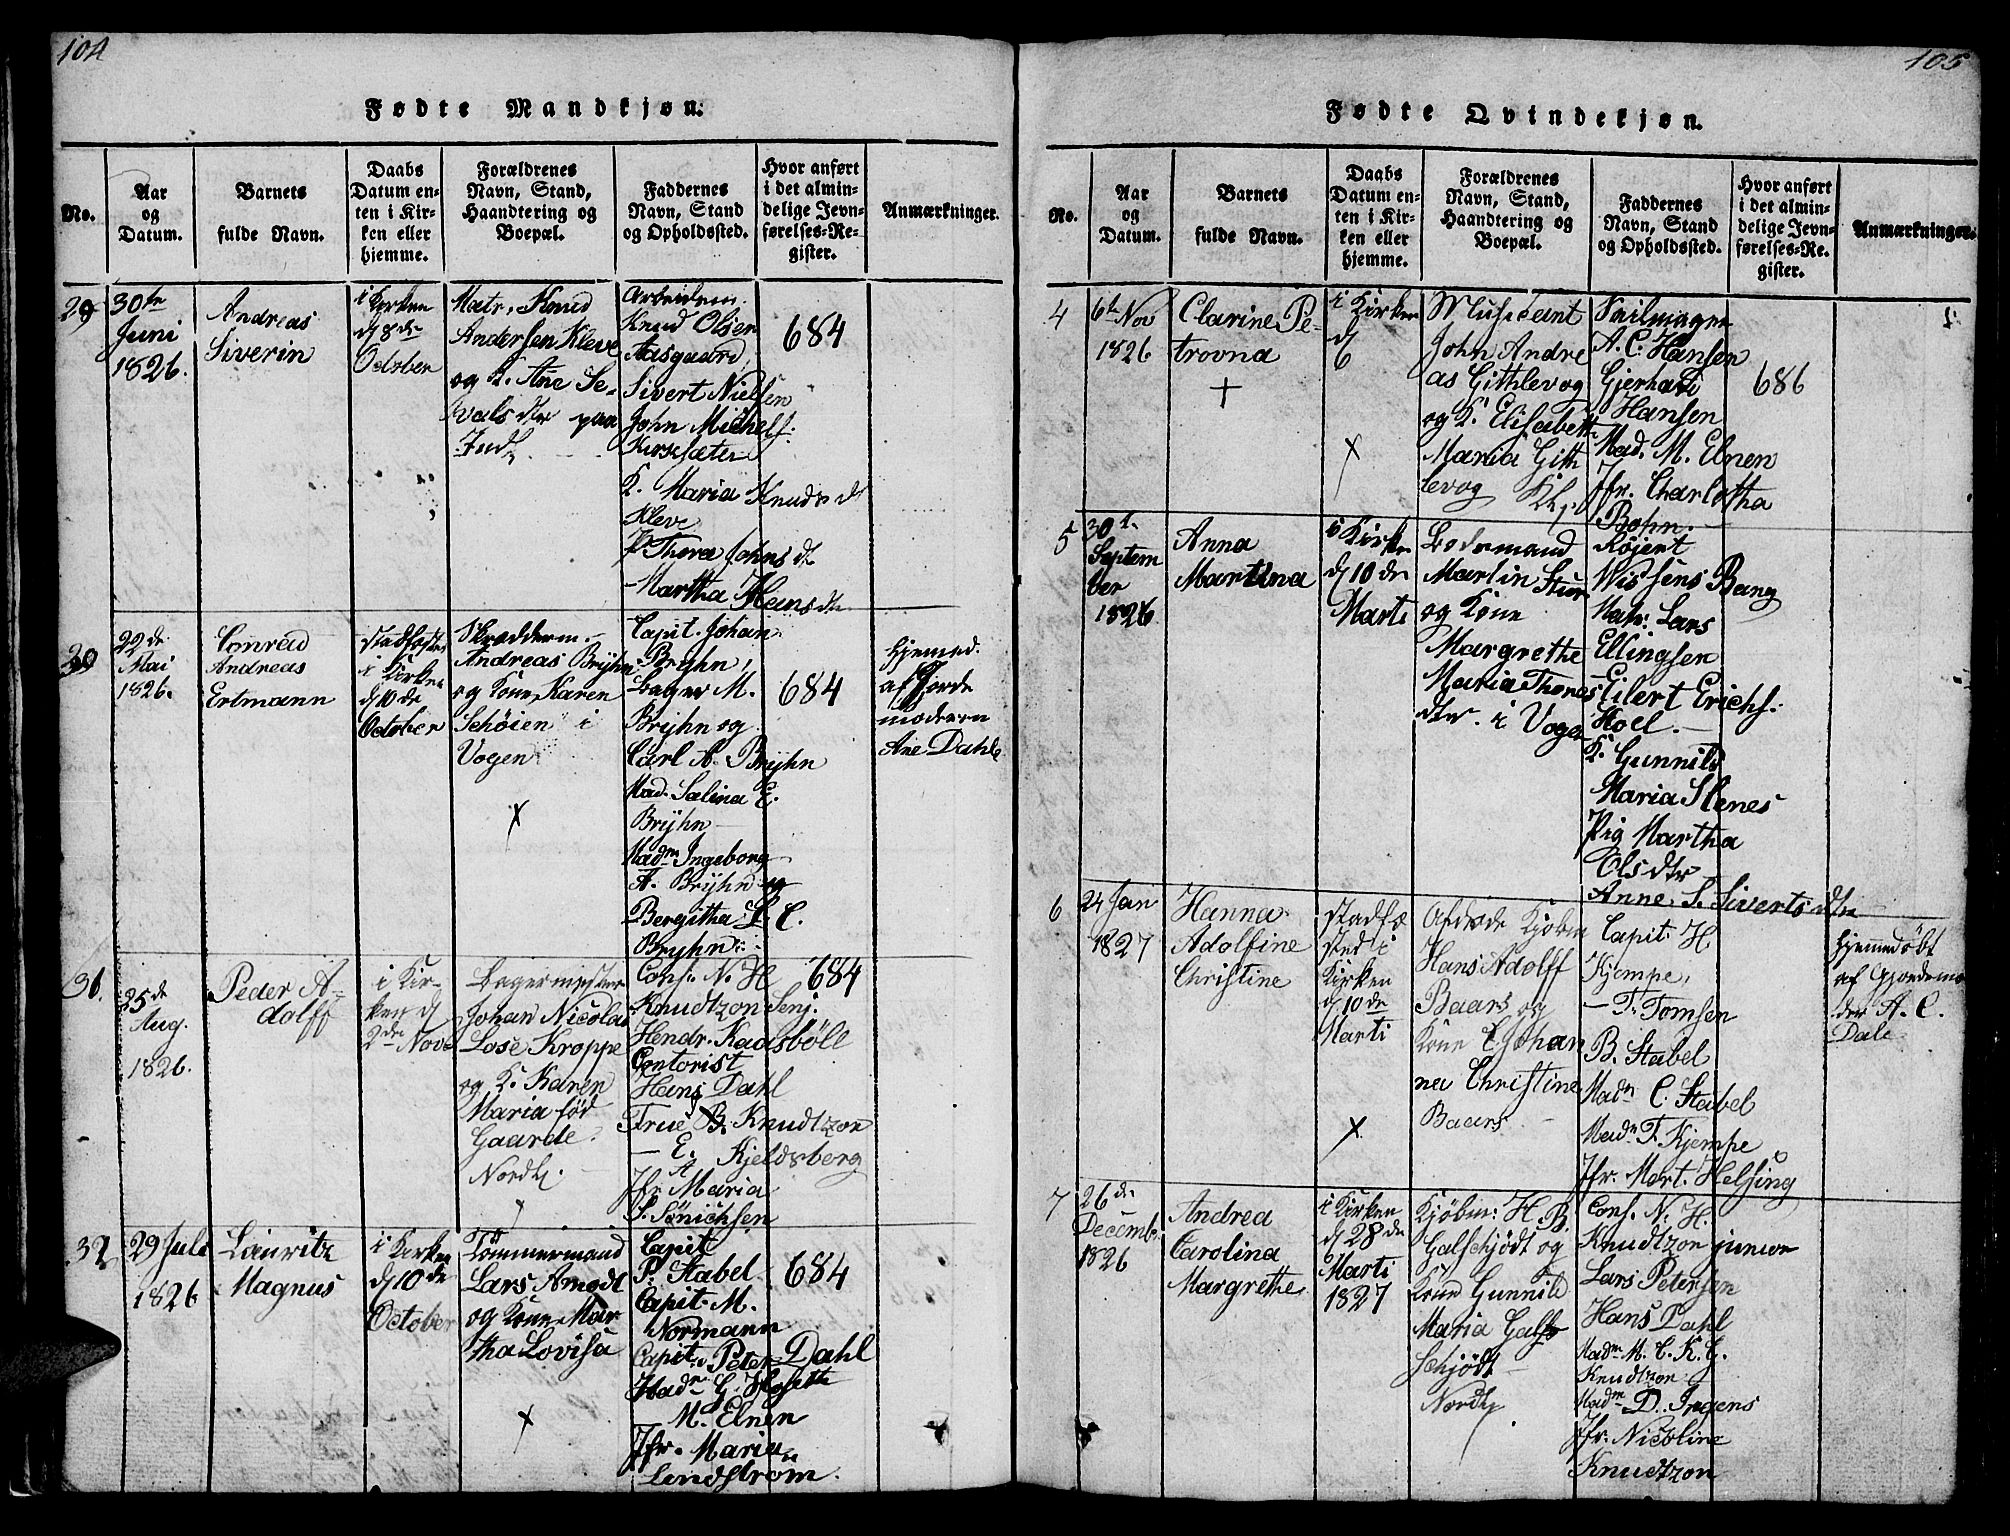 104
Fødte Mandkjøn.
No.
Aar
og
Datum.
Barnets
fulde Navn.
Daabs
Datum en-
ten i Kir-
ken eller
hjemme.
Forældrenes
Navn, Stand,
Haandtering og
Boepæl.
Faddernes
Navn, Stand
og Opholdssted.
Hvor anført
i det almin-
delige Jevn-
førelses-Re-
gister.
Anmærkninger.
29
30te
Juni
1826.
Andreas
Siverin
i Kirken
d 8de
October
Matr. Knud
Andersen Kleve
og K. Ane Se-
valsdtr paa
Indl.
Arbeidsm.
Knud Olsen
Aasgaard,
Sivert Nielsen
John Michels.
K. Maria Knudsd
Kleve
P Thora Johnsdt
Martha Hansdtr
684
30
22de
Mai
1826.
Conrad
Andreas
Ertmann
stadfæstet
i Kirken
d 10de
October
Skrædderm.
Andreas Brÿhn
og Kone Karen
Schöien i
Vogen
Capit. Johan
Brÿhn,
Bager M.
Brÿhn og
Carl A. Brÿhn
Mad. Salina E.
Brÿhn
Madm Ingeborg
A. Brÿhn og
Bergitha L C.
Brÿhn.
684
Hjemmed.
af Jorde
moderen
Ane Dahle
31.
25de
Aug.
1826.
Peder A-
dolff
i Kir-
ken d
2de Nov
Bagermester
Johan Nicolai
Lose Kroppe
og K. Karen
Maria fød
Gaarde.
Nordl.
Cons. N. H
Knudtzon Senj.
Hendr. Kaasböll
Contorist
Hans Dahl
Frue B. Knudtzon
— E. Kjeldsberg
Jfr A Maria
S. Sönichsen
684
32
29 Juli
1826
Lauritz
Magnus
i Kirken
d 10de
October
Tömmermand
Lars Amodt
og Kone Mar
tha Lovisa
Capit
P. Stabel
Capit. M.
Normann
Capit. Peter Dahl
Madm G.
M. Elnen
Jfr. Maria
Lindström.
684
105
Fødte Qvindekjøn.
No.
Aar
og
Datum.
Barnets
fulde Navn.
Daabs
Datum en-
ten i Kir-
ken eller
hjemme.
Forældrenes
Navn, Stand,
Haandtering og
Boepæl.
Faddernes
Navn, Stand
og Opholdssted.
Hvor anført
i det almin-
delige Jevn-
førelses-Re-
gister.
Anmærkninger.
4
6te Nov
1826
Clarine Pe-
trovna
+
i Kirken
d
6
Musicant
John Andre
as Githlevog
og K. Elisabett
Maria Gith
levog
Seilmager
A. C. Hansen
Gjerhart
Hansen
Mad. M. Elnen
Jfr. Charlotha
Bohn.
686
5
30t.
Septem
ber
1826
Anna
Martina
i Kirken
d 10de
Marti
Bodemand
Martin Stur
og Kone
Margrethe
Maria Thores
dtr. i Vogen
Wissens Bang
Matr. Lars
Ellingsen
Eilert Erichs.
Hoel.
K. Gunnild
Maria Stenes
Pig Martha
Olsdtr
Anne. S. Sivertsdtr
6
24 Jan
1827
Hanna
Adolfine
Christine
stadfæ
sted i
Kirken
d 10de
Marti
Afdøde Kjøbm
Hans Adolff
Baars og
Kone C Johan
na Christine
Baars
Capit. H
Kjempe,
— F. Tomsen
B. Stabel
Madm C. Stabel
Madm F. Kjempe
Jfr. Mart. Helsing
Hjemmedöbt
af Gjordemo
der A. C.
Dale
7
26de
Decemb.
1826
Andrea
Carolina
Margrethe
i Kirken
d 28de
Marti
1827
Kjøbm: H. B.
Galschjödt og
Kone Gunnild
Maria Gals
Schjödt
Nordl
Cons. N. H.
Knudtzon junior
Lars Petersen
Hans Dahl
Madm. M. C. K. G.
Knudtzon
Madm D. Ingens
Jfr. Nicoline
Knudtzon